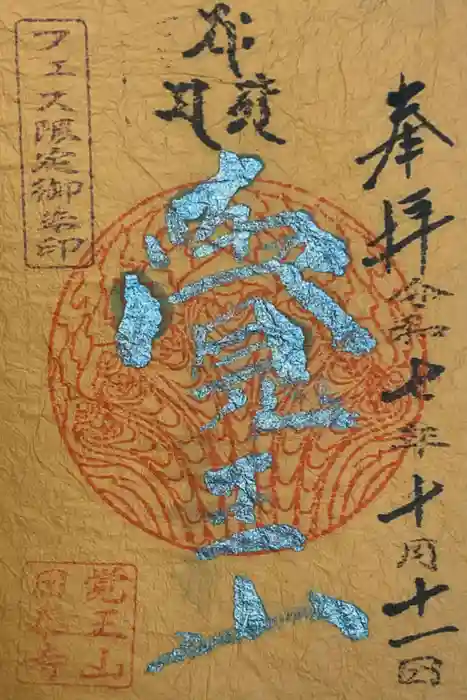 奉拝
令和七年十月十一日
覚王山
フェス限定御朱印
覚王山
日泰寺